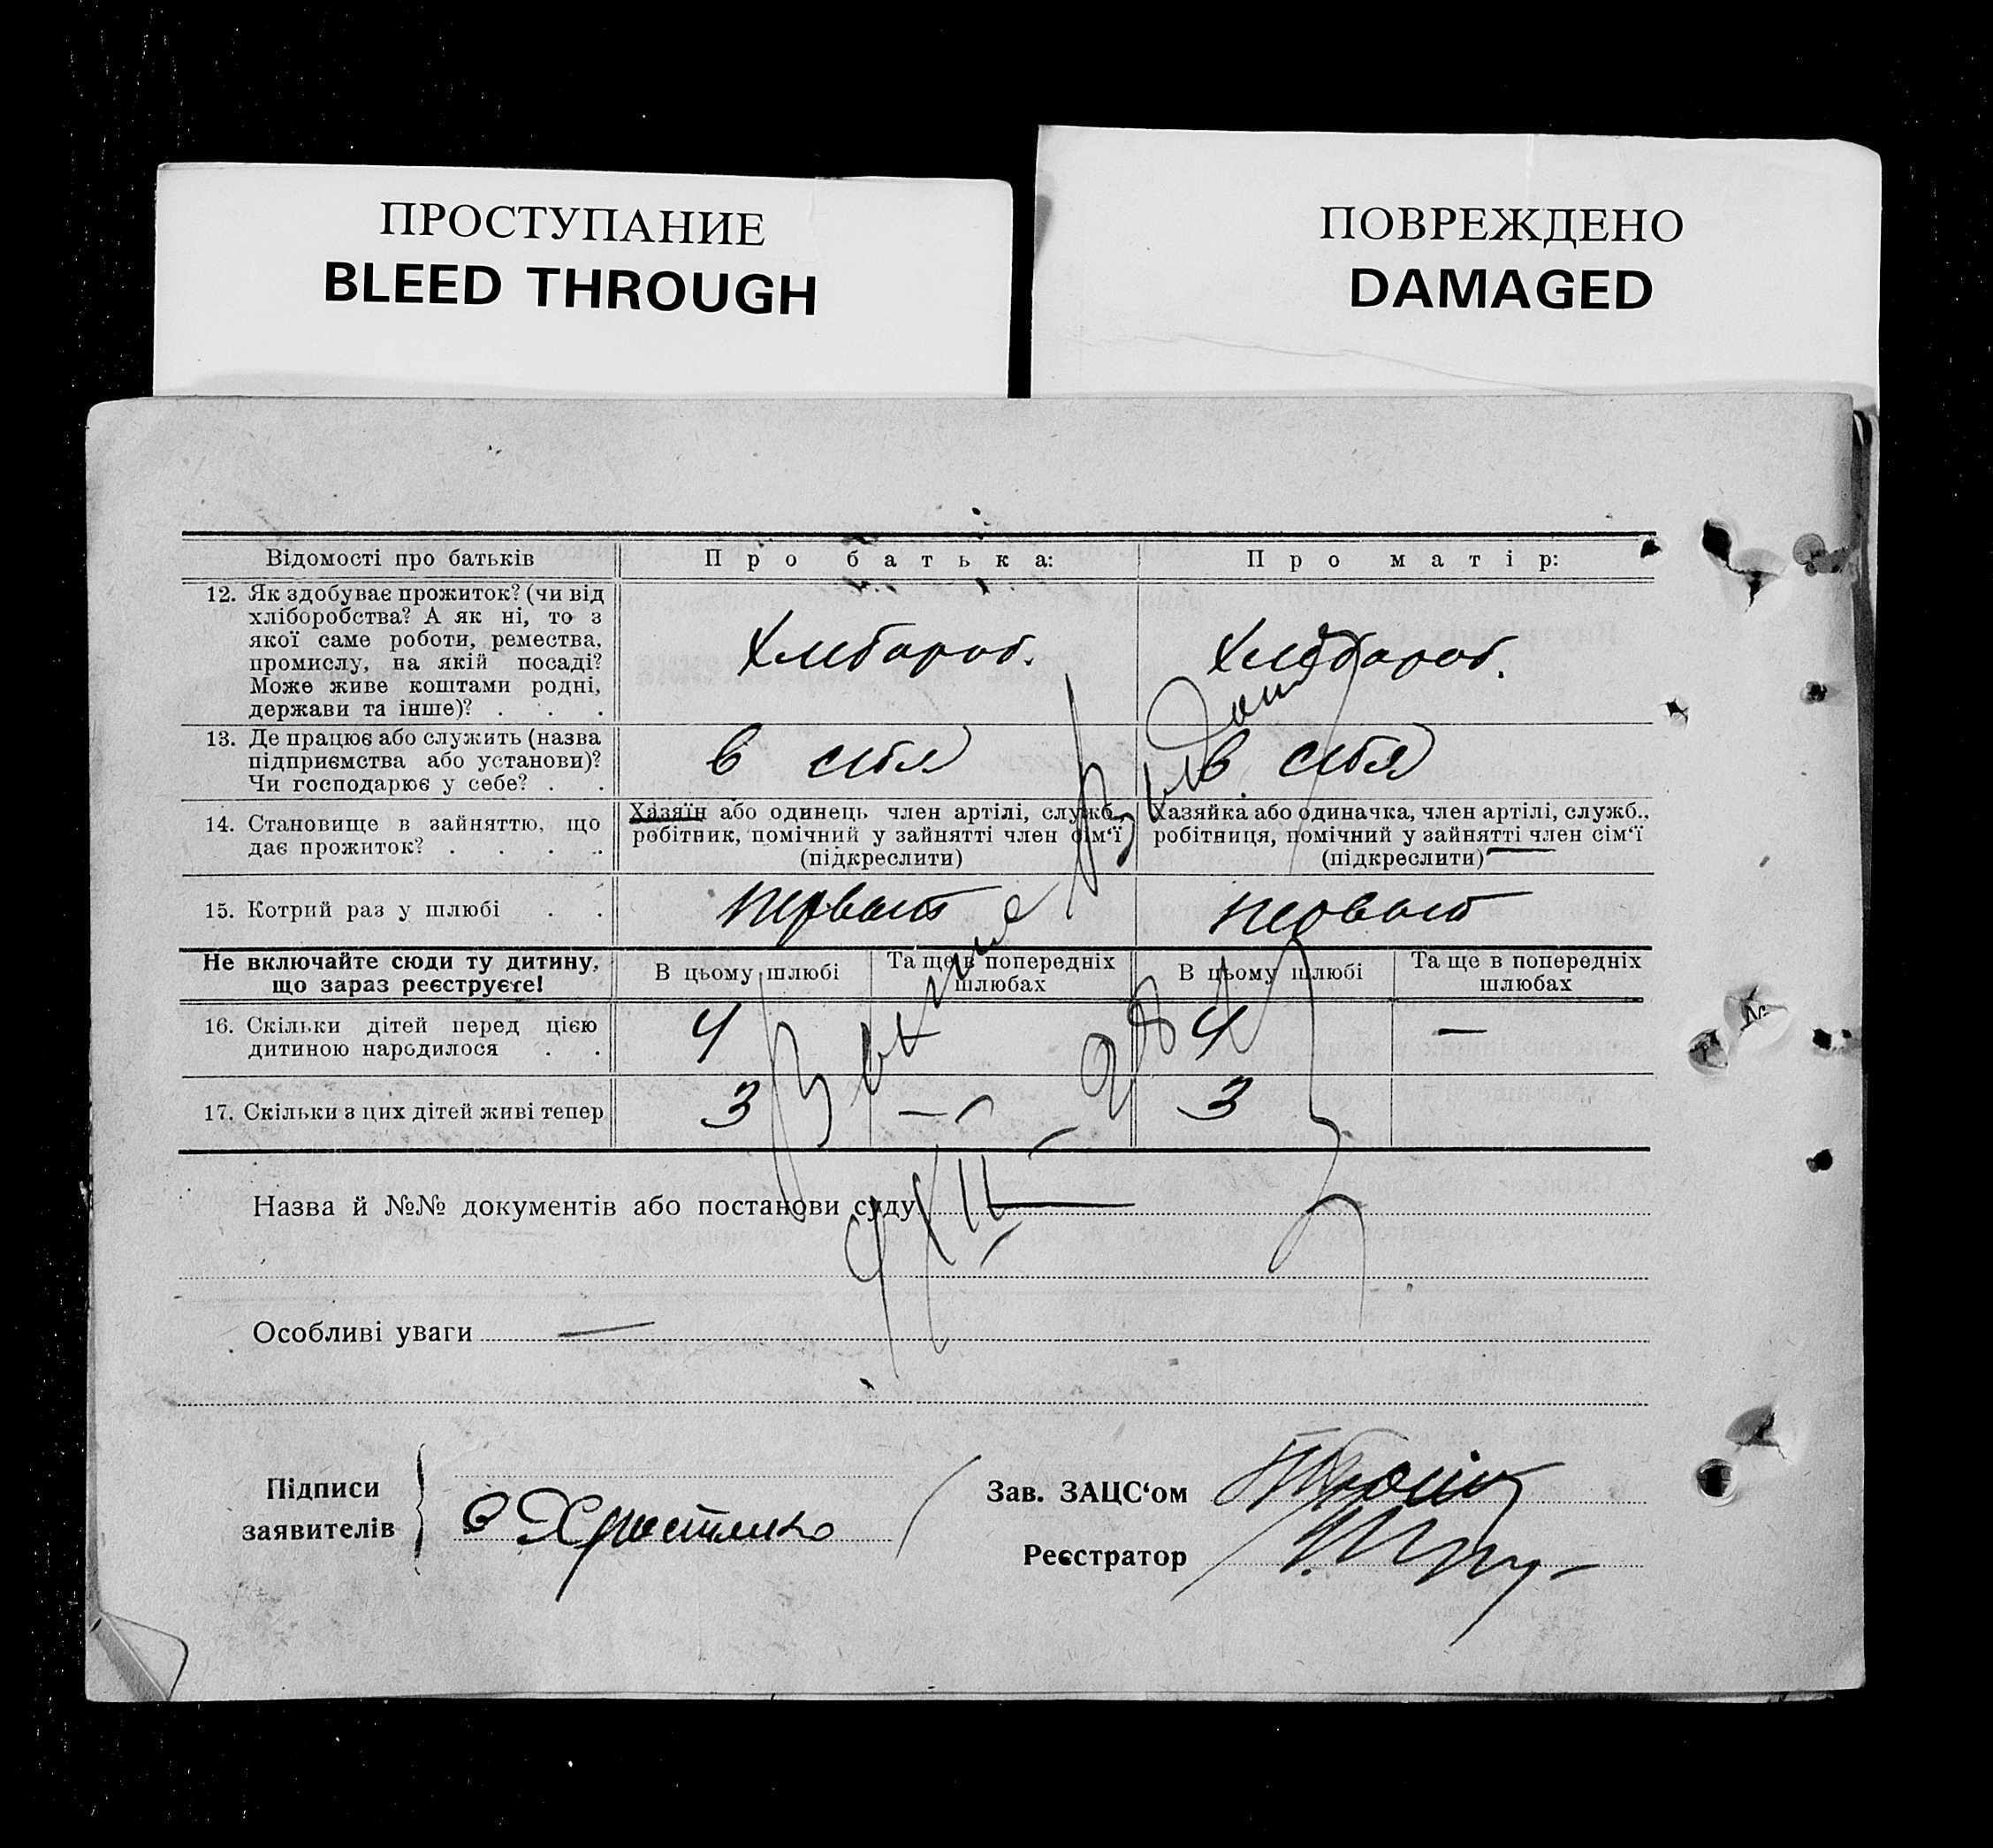 ПРОСТУПАНИЕ
BLEED THROUGH
ПОВРЕЖДЕНО
DAMAGED
Відомості про батьків
Про батька:
Про матір:
12. Як здобуває прожиток? (чи від
хліборобства? А як ні, то з
якої саме роботи, ремества,
промислу, на якій посаді?
Може живе коштами родні,
держави та інше)? . . .
Хлебороб.
Хлебороб.
13. Де працює або служить (назва
підприємства або установи)?
Чи господарює у себе? . .
в себя
в себя
14. Становище в зайняттю, що
дає прожиток? . . . .
Хазяїн або одинець член артілі, служб.,
робітник, помічний у зайнятті член сім‘ї
(підкреслити)
Хазяйка або одиначка, член артілі, служб.,
робітниця, помічний у зайнятті член сім‘ї
(підкреслити)
15. Котрий раз у шлюбі . .
первый
первый
Не включайте сюди ту дитину,
що зараз реєструєте!
В цьому шлюбі
Та ще в попередніх
шлюбах
В цьому шлюбі
Та ще в попередніх
шлюбах
16. Скільки дітей перед цією
дитиною народилося . .
4
4
—
17. Скільки з цих дітей живі тепер
3
—
3
Назва й №№ документів або постанови суду
Особливі уваги —
Підписи
заявителів
Зав. ЗАЦС‘ом
Реєстратор